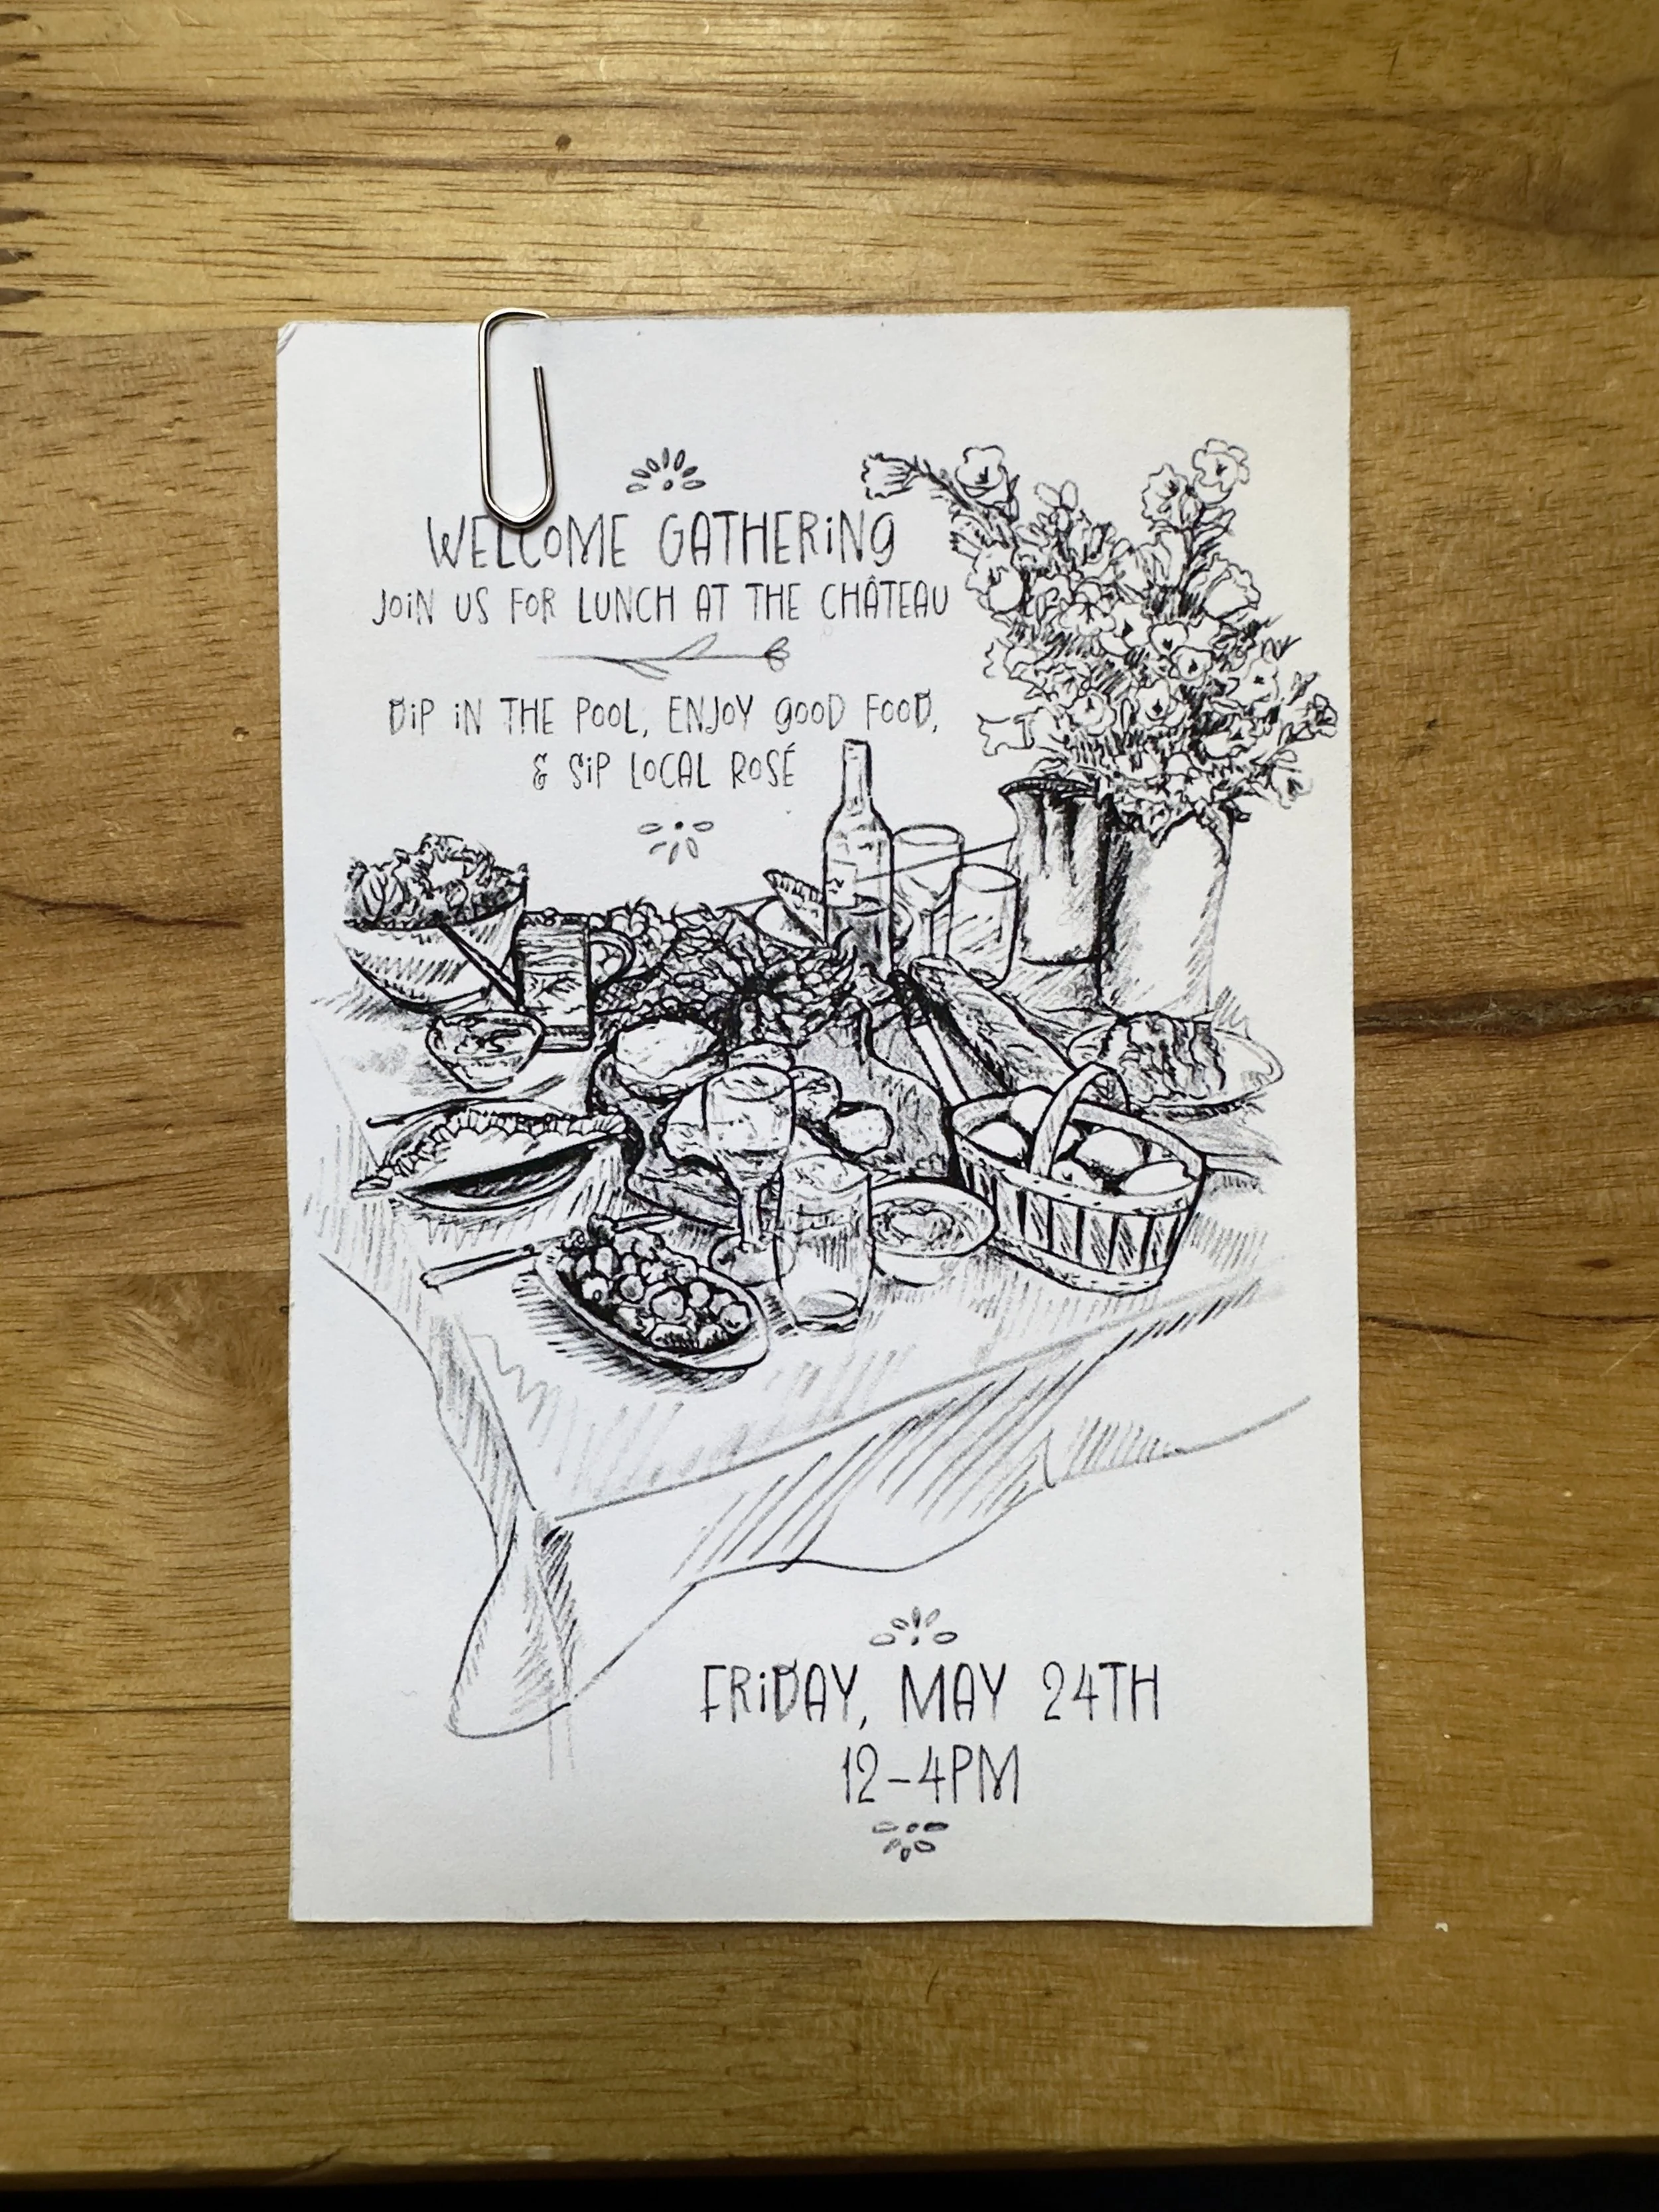 WELCOME GATHERING
JOIN US FOR LUNCH AT THE CHÂTEAU
DIP IN THE POOL, ENJOY GOOD FOOD,
& SIP LOCAL ROSÉ
FRIDAY, MAY 24TH
12-4PM